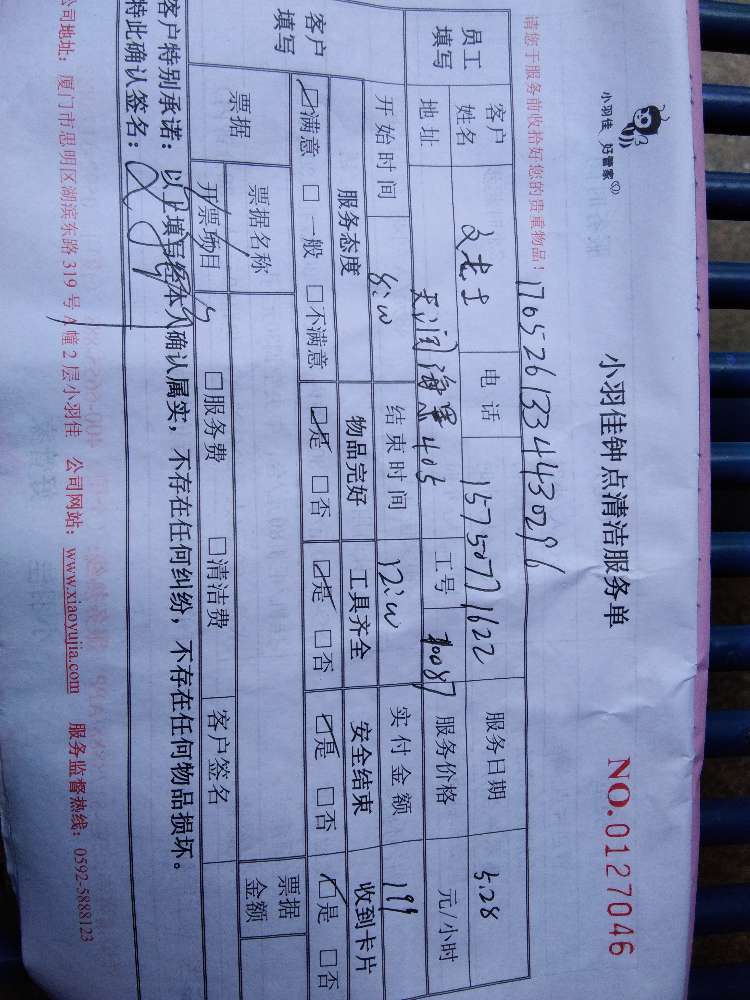 小羽佳 好管家
小羽佳钟点清洁服务单
NO.0127046
请您于服务前收拾好您的贵重物品!
17652613344430296
员工填写 客户姓名 文女士 电话 15750771622 服务日期 5.28
地址 405 工号 服务价格 元/小时
开始时间 8:00 结束时间 12:00 实付金额 199
客户填写 服务态度 物品完好 工具齐全 安全结束 收到卡片
☑满意 □一般 □不满意 ☑是 □否 ☑是 □否 ☑是 □否 ☑是 □否
票据 票据名称 票据金额
开票项目 □服务费 □清洁费 客户签名
客户特别承诺:以上填写经本人确认属实,不存在任何纠纷,不存在任何物品损坏。
特此确认签名:
公司地址:厦门市思明区湖滨东路319号A幢2层小羽佳 公司网站:www.xiaoyujia.com 服务监督热线:0592-5888123